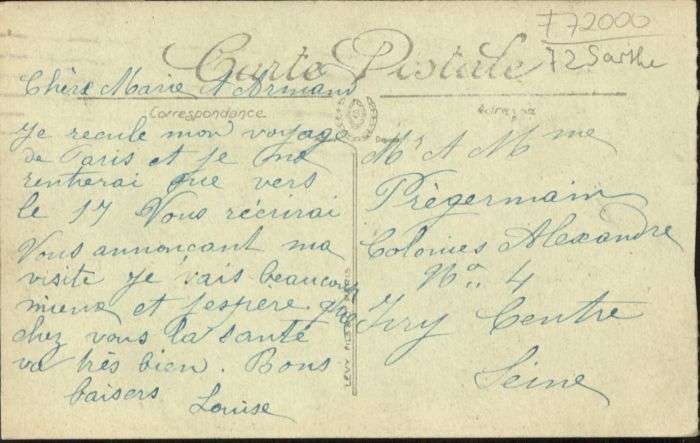 F72000
72 Sarthe
Carte Postale
Correspondance
Adresse
Chère Marie et Armand
Je recule mon voyage
de Paris et je ne
rentrerai que vers
le 17 Vous récrirai
Vous annonçant ma
visite Je vais beaucoup
mieux et j'espère que
chez vous la santé
va très bien. Bons
baisers Louise
LEVY FILS PARIS
Mr et Mme
Prègermain
Colonies Alexandre
No. 4
Ivry Centre
Seine